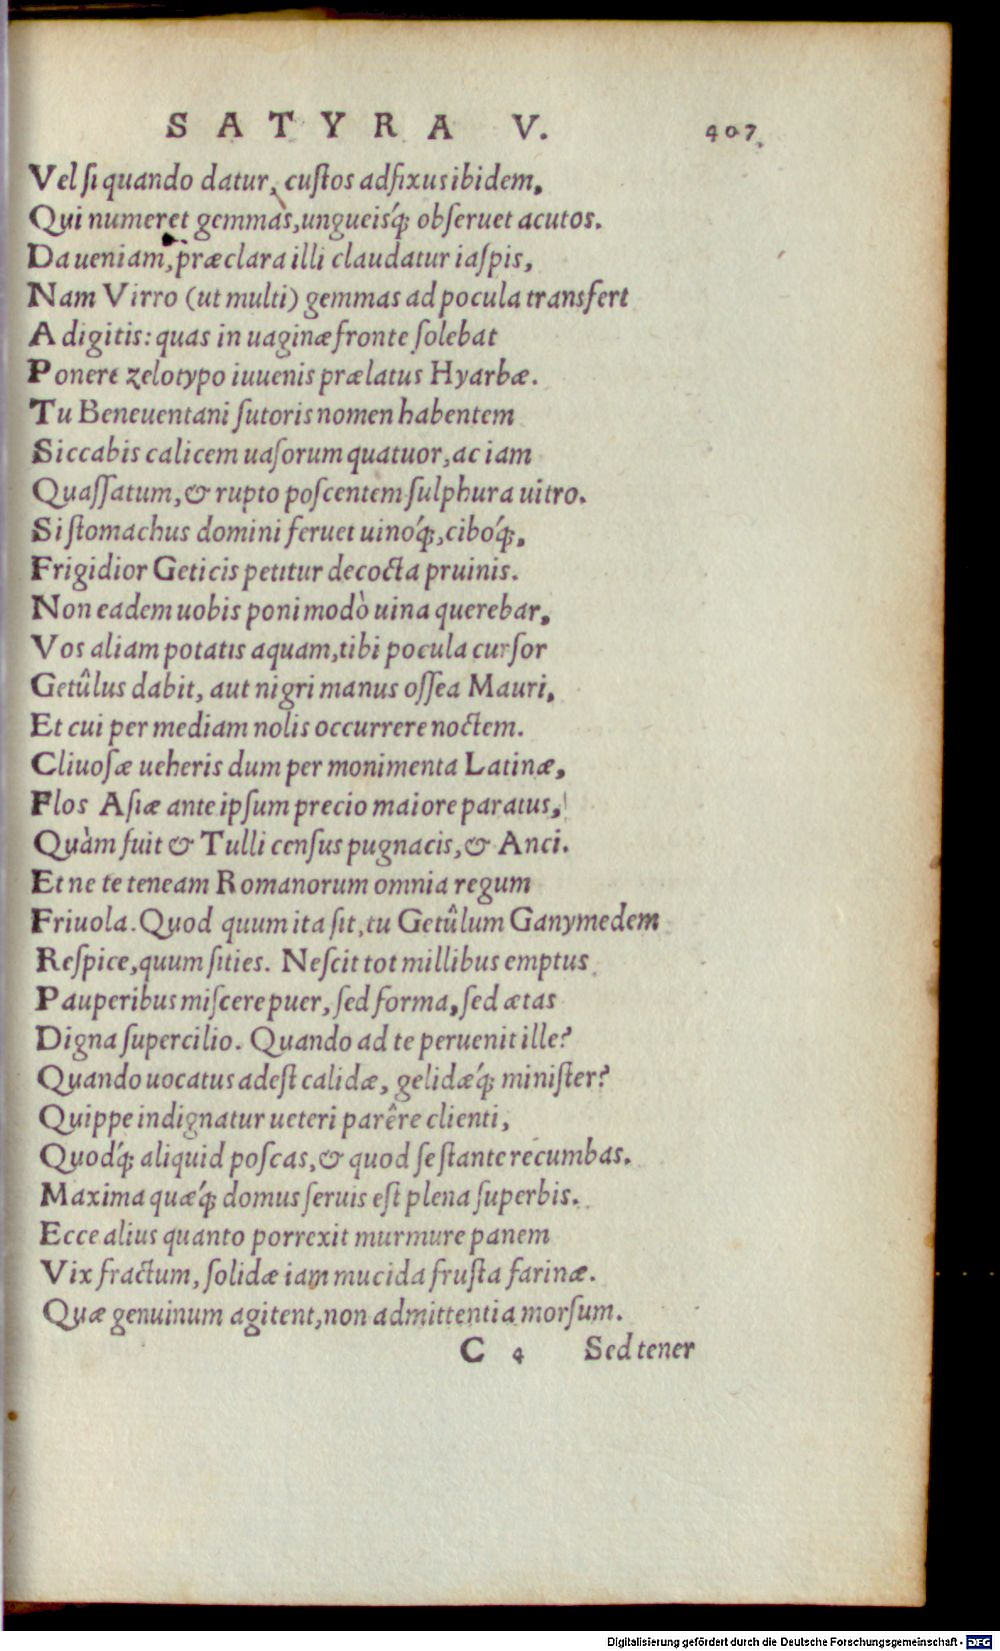 SATYRA V. 407
Vel ſi quando datur, cuſtos adfixus ibidem,
Qui numeret gemmas, ungueisq́; obſeruet acutos.
Da ueniam, præclara illi claudatur iaſpis,
Nam Virro (ut multi) gemmas ad pocula transfert
A digitis: quas in uaginæ fronte ſolebat
Ponere zelotypo iuuenis prælatus Hyarbæ.
Tu Beneuentani ſutoris nomen habentem
Siccabis calicem uaſorum quatuor, ac iam
Quaſſatum, & rupto poſcentem ſulphura uitro.
Si ſtomachus domini feruet uinoq́;, ciboq́;,
Frigidior Geticis petitur decocta pruinis.
Non eadem uobis poni modò uina querebar,
Vos aliam potatis aquam, tibi pocula curſor
Getûlus dabit, aut nigri manus oſſea Mauri,
Et cui per mediam nolis occurrere noctem.
Cliuoſæ ueheris dum per monimenta Latinæ,
Flos Aſiæ ante ipſum precio maiore paratus,
Quàm fuit & Tulli cenſus pugnacis, & Anci.
Et ne te teneam Romanorum omnia regum
Friuola. Quod quum ita ſit, tu Getûlum Ganymedem
Reſpice, quum ſities. Neſcit tot millibus emptus
Pauperibus miſcere puer, ſed forma, ſed ætas
Digna ſupercilio. Quando ad te peruenit ille?
Quando uocatus adeſt calidæ, gelidæq́; miniſter?
Quippe indignatur ueteri parêre clienti,
Quodq́; aliquid poſcas, & quod ſe ſtante recumbas.
Maxima quæq́; domus ſeruis eſt plena ſuperbis.
Ecce alius quanto porrexit murmure panem
Vix fractum, ſolidæ iam mucida fruſta farinæ.
Quæ genuinum agitent, non admittentia morſum.
C 4 Sed tener
Digitalisierung gefördert durch die Deutsche Forschungsgemeinschaft - DFG